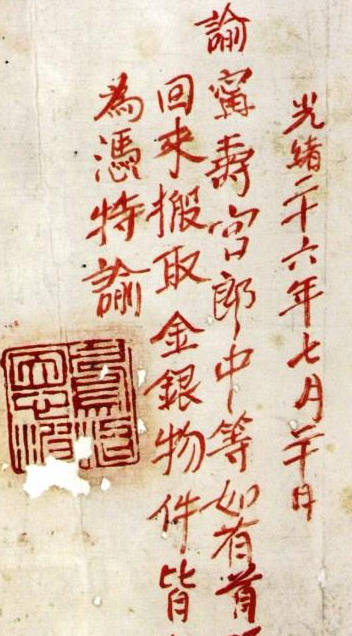 光緒二十六年七月二十日
諭甯壽宮郎中等如有首
回來搬取金銀物件皆
為憑特諭